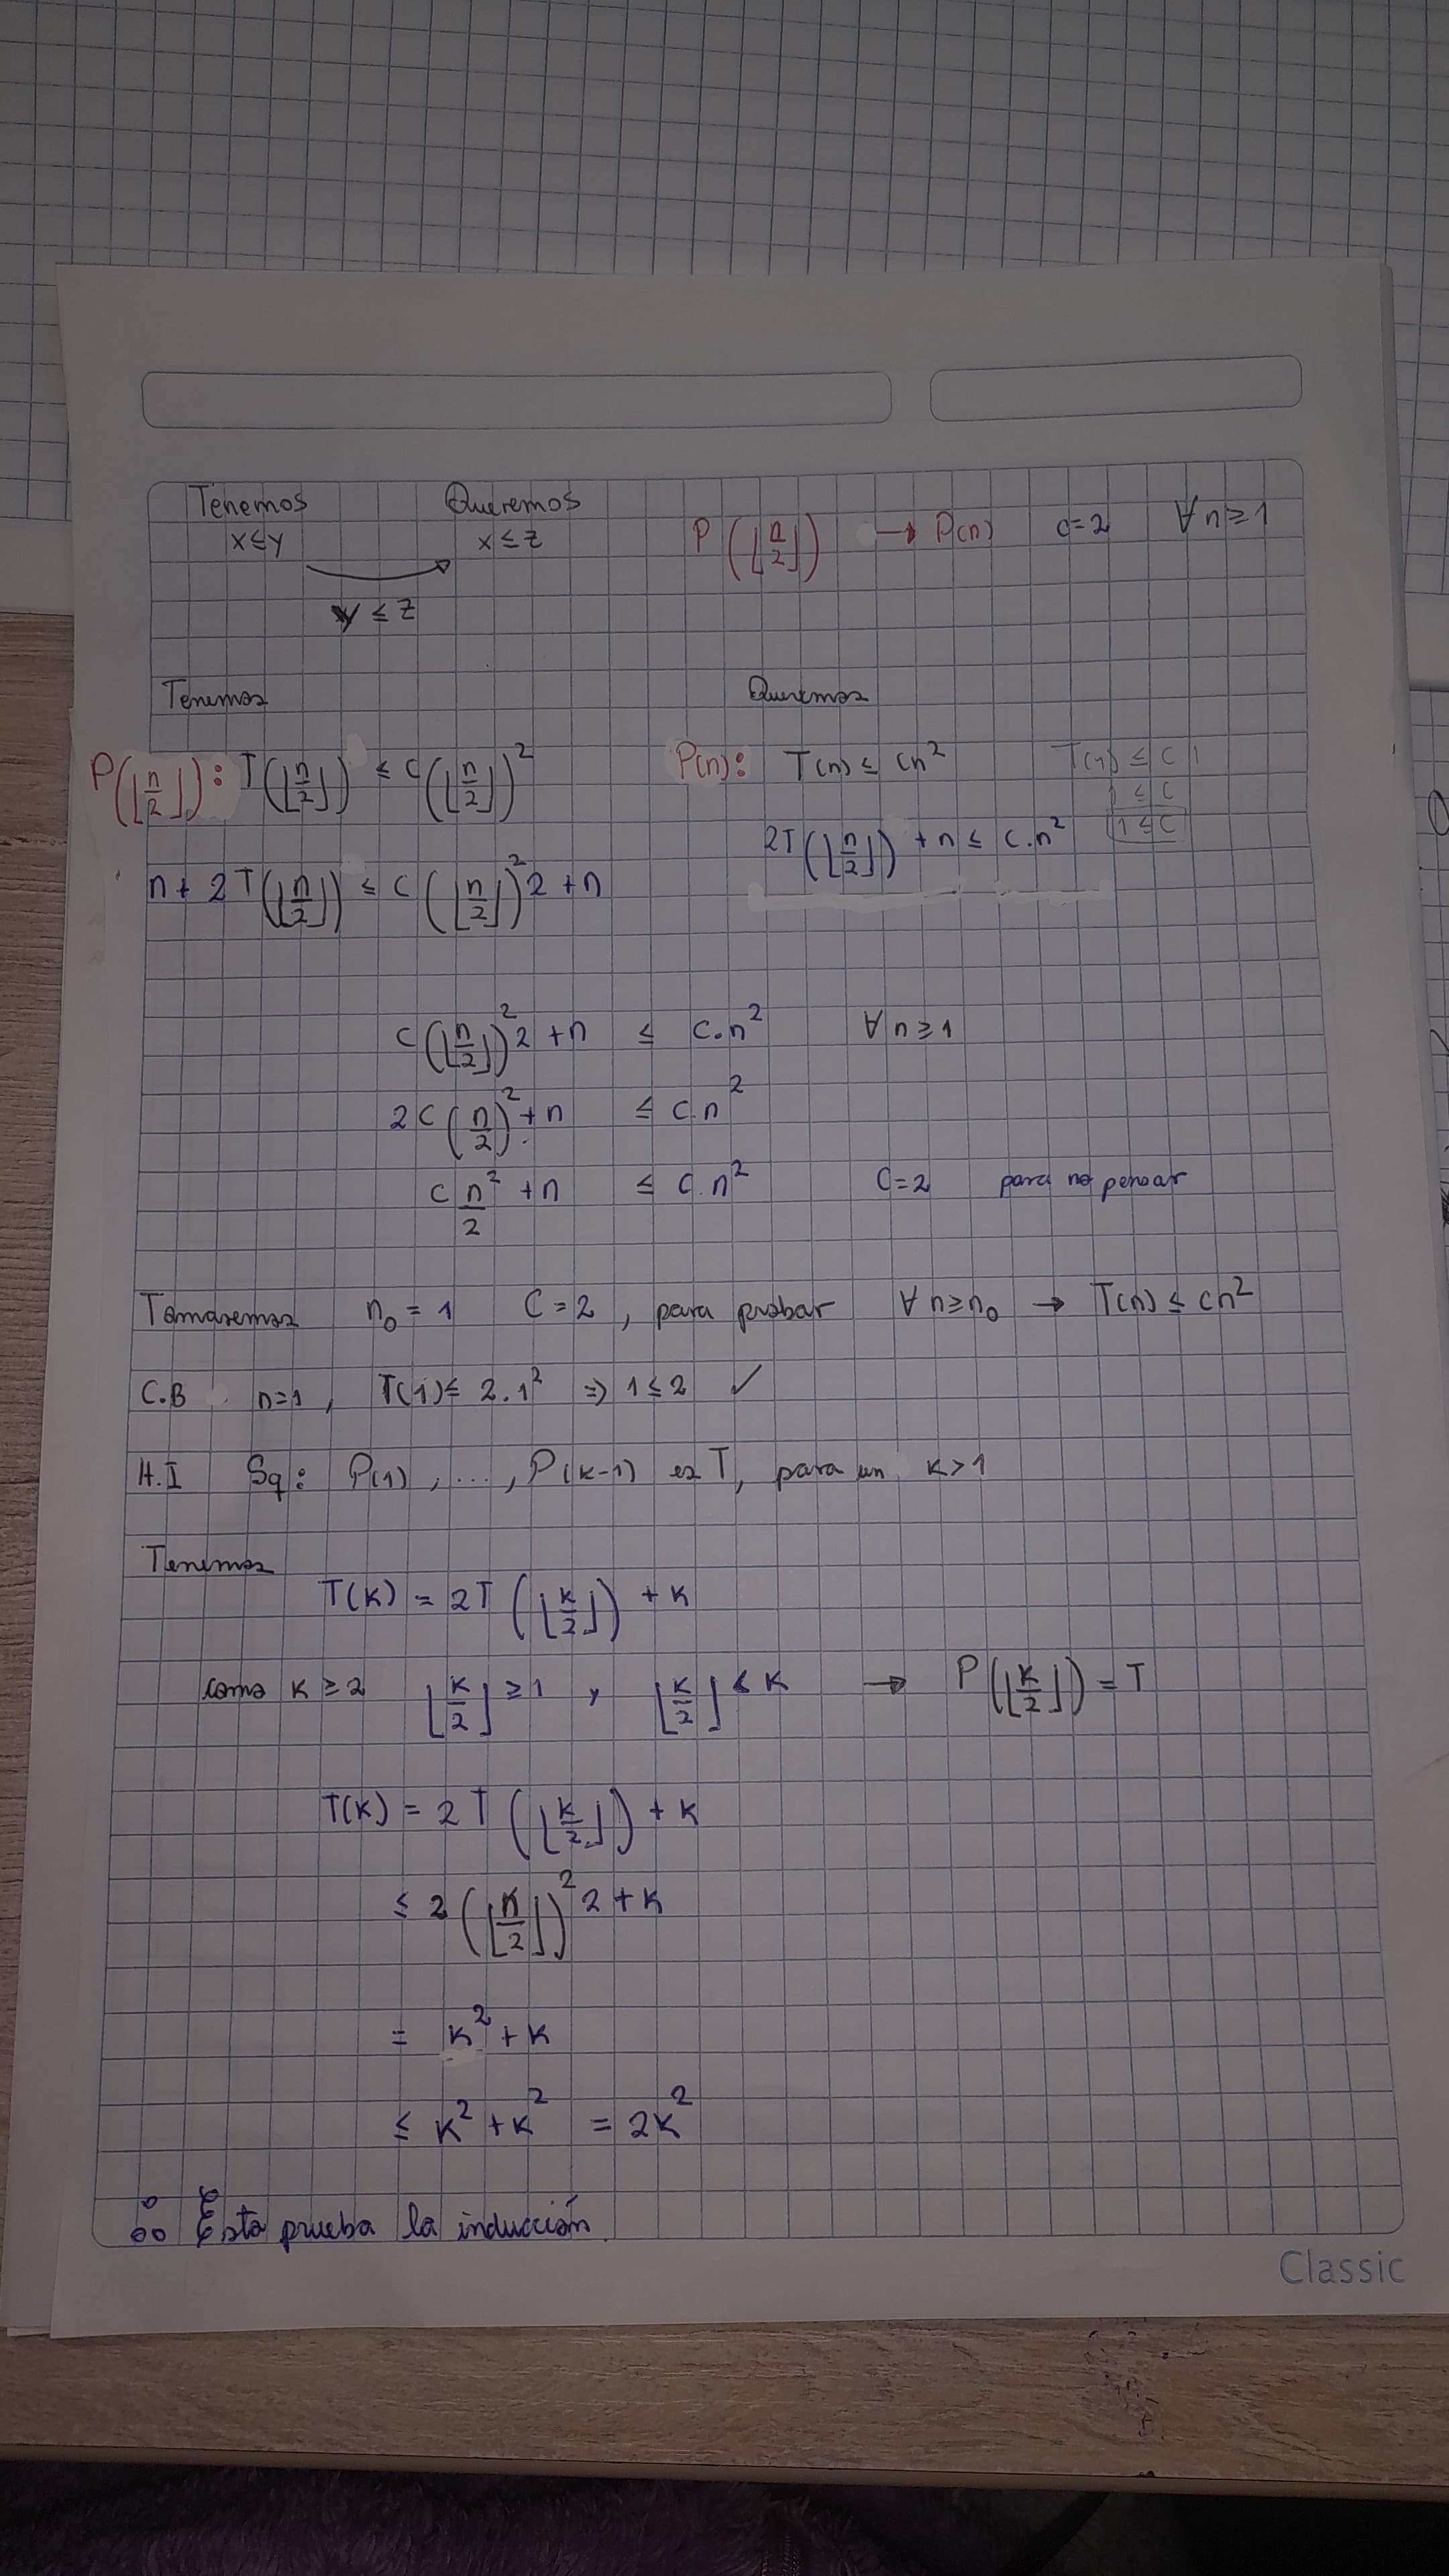 Tenemos Queremos
x≤y x≤z P(⌊n/2⌋) → P(n) c=2 ∀n≥1
y≤z
Tenemos Queremos
P(⌊n/2⌋): T(⌊n/2⌋) ≤ c(⌊n/2⌋)² P(n): T(n) ≤ cn² T(1) ≤ c 1
1 ≤ c
2T(⌊n/2⌋) + n ≤ c.n² 1 ≤ c
n + 2T(⌊n/2⌋) ≤ c(⌊n/2⌋)² 2 + n
c(⌊n/2⌋)² 2 + n ≤ c.n² ∀n≥1
2c(n/2)² + n ≤ c.n²
c n²/2 + n ≤ c.n² C=2 para no pensar
Tomaremos n₀ = 1 C = 2, para probar ∀n≥n₀ → T(n) ≤ cn²
C.B n=1, T(1) ≤ 2.1² ⇒ 1≤2 ✓
H.I Sq: P(1), ..., P(k-1) es T, para un k>1
Tenemos
T(k) = 2T(⌊k/2⌋) + k
como k≥2 ⌊k/2⌋ ≥ 1 y ⌊k/2⌋ < k → P(⌊k/2⌋) = T
T(k) = 2T(⌊k/2⌋) + k
≤ 2(⌊k/2⌋)² 2 + k
= k² + k
≤ k² + k² = 2k²
∴ Esto prueba la inducción.
Classic